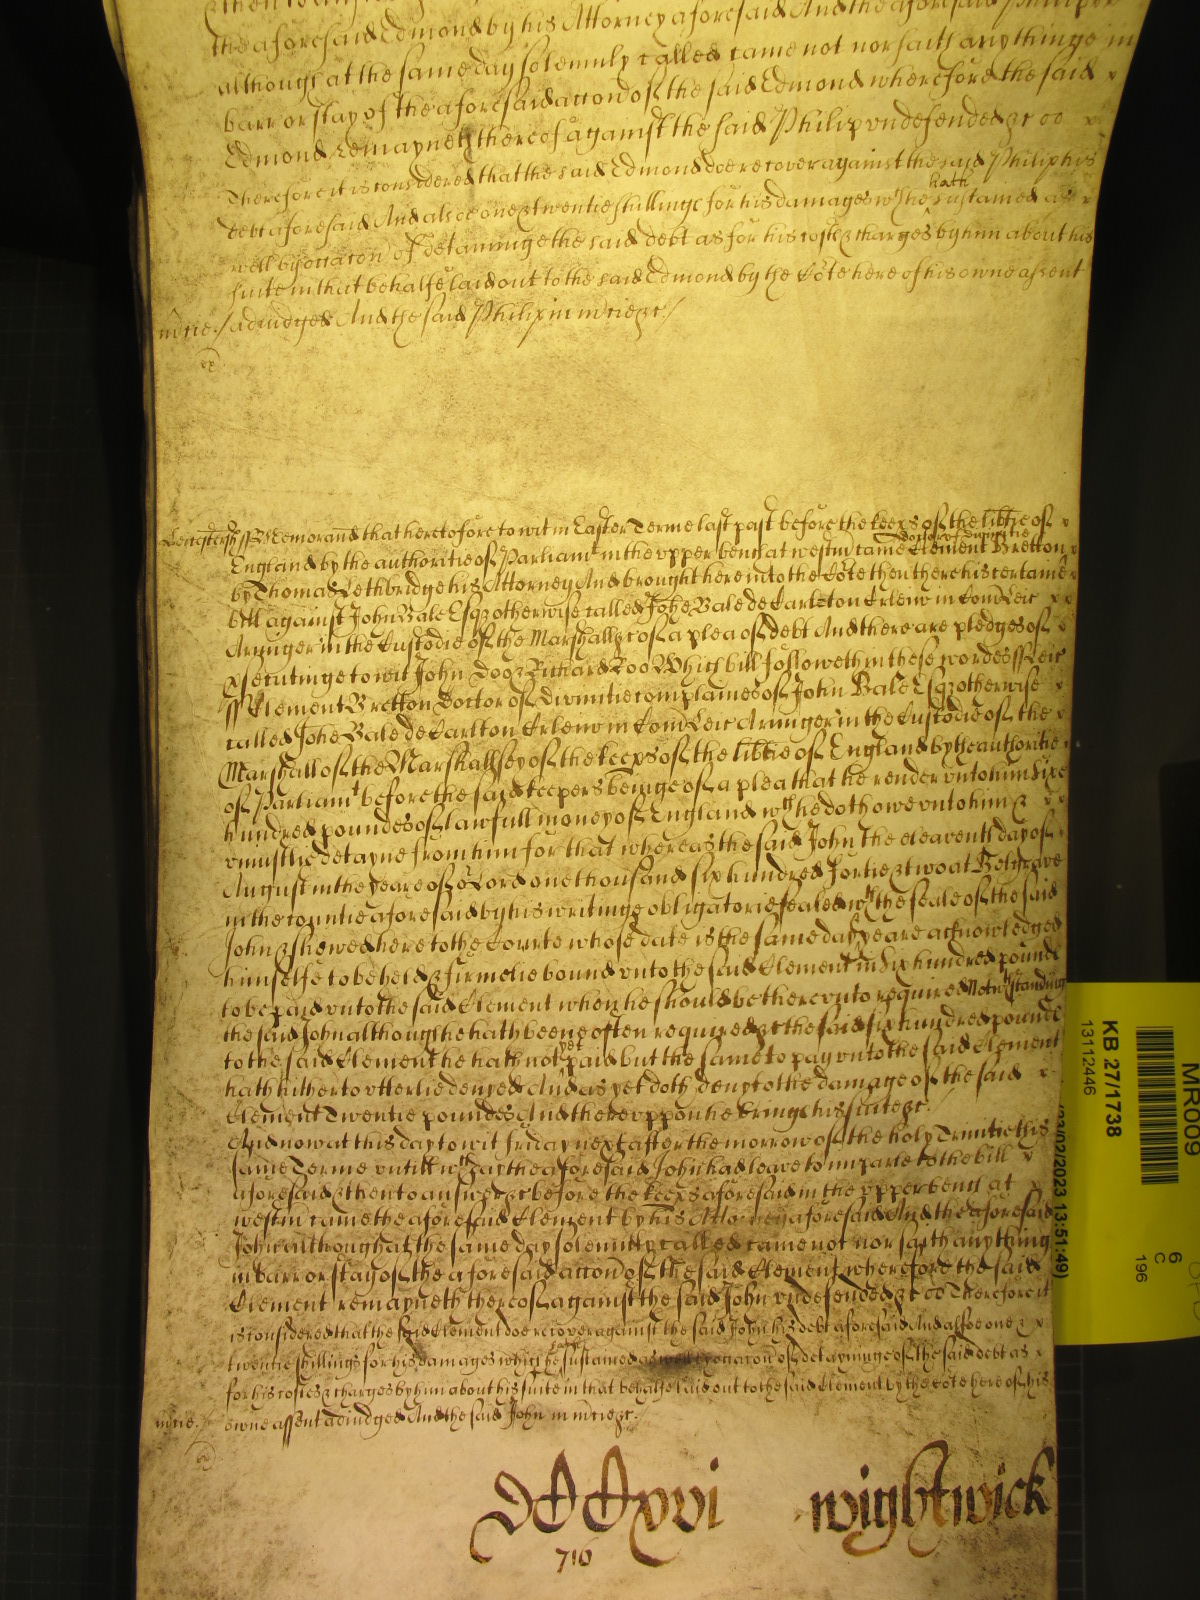 the aforesaid Edmond by his Attorney aforesaid And the aforesaid Phillipp
although at the same day solemnly called came not nor saith anythinge in
barr or stay of the aforesaid accon of the said Edmond wherefore the said
Edmond remayneth thereof against the said Philip undefended &c oo
Therefore it is considered that the said Edmond doe recover against the said Philip his
debt aforesaid And alsoe one & twentie shillings for his damages wch he hath sustained as
well by occacon of detaininge the said debt as for his costs & charges by him about his
suite in that behalfe laid out to the said Edmond by the Cote here of his owne assent
mcie / adiudged And the said Philip in mcie &c /
Leicestersh ss Memorand that heretofore to wit in Easter Terme last past before the keeps of the libtie of
England by the authoritie of Parliamt in the upper bench at westm came Clement Bretton doctor of divinitie
by Thomas Lethbridge his Attorney And brought here into the Cote then there his certaine
bill against John Bale Esqr otherwise called Johe Bale de Carleton Curlew in Com Leic
Armiger in the Custodie of the Marshall &c of a plea of debt And there are pledges of
psecutinge to wit John Doo & Richard Roo Which bill followeth in these wordes ss Leic
ss Clement Bretton Doctor of divinitie complaines of John Bale Esqr otherwise
called Johe Bale de Carlton Curlew in Com Leic Armiger in the Custodie of the
Marshall of the Marshallsey of the keeps of the libtie of England by the authoritie
of Parliamt before the said keepers beinge of a plea that he render unto him Sixe
hundred poundes of lawfull money of England wch he doth owe unto him &
uniustlie detayne from him for that whereas the said John the eleaventh day of
August in the yeare of or Lord one thousand six hundred fortie & two at Belgrave
in the countie aforesaid by his writinge obligatorie sealed wth the seale of the said
John & shewed here to the Courte whose date is the same day & yeare acknowledged
himselfe to be held & firmelie bound unto the said Clement in Six hundred pounds
to be paid unto the said Clement when he should be thereunto required Notwthstanding
the said John although he hath beene often required &c the said six hundred pounds
to the said Clement he hath not yet paid but the same to pay unto the said Clement
hath hitherto utterlie denyed And as yet doth deny to the damage of the said
Clement Twentie poundes And thereuppon he bringeth his suite &c
And now at this day to wit friday next after the morrow of the holy Trinitie this
same Terme untill wch day the aforesaid John had leave to imparle to the bill
aforesaid & then to answer &c before the keeps aforesaid in the upper bench at
westm came the aforesaid Clement by his Attorney aforesaid And the aforesaid
John although at the same day solemnly called came not nor saith anything
in barr or stay of the aforesaid accon of the said Clement wherefore the said
Clement remayneth thereof against the said John undefended &c oo Therefore it
is considered that the said Clement doe recover against the said John his debt aforesaid And alsoe one &
twentie shillings for his damages which he hath sustained as well by occacon of detayninge of the said debt as
for his costes & charges by him about his suite in that behalfe laid out to the said Clement by the Cote here of his
mcie / owne assent adiudged And the said John in mcie &c /
DCCxvi wightwick
716
MR009
KB 27/1738
13112446
6
C
196
03/02/2023 13:51:49)